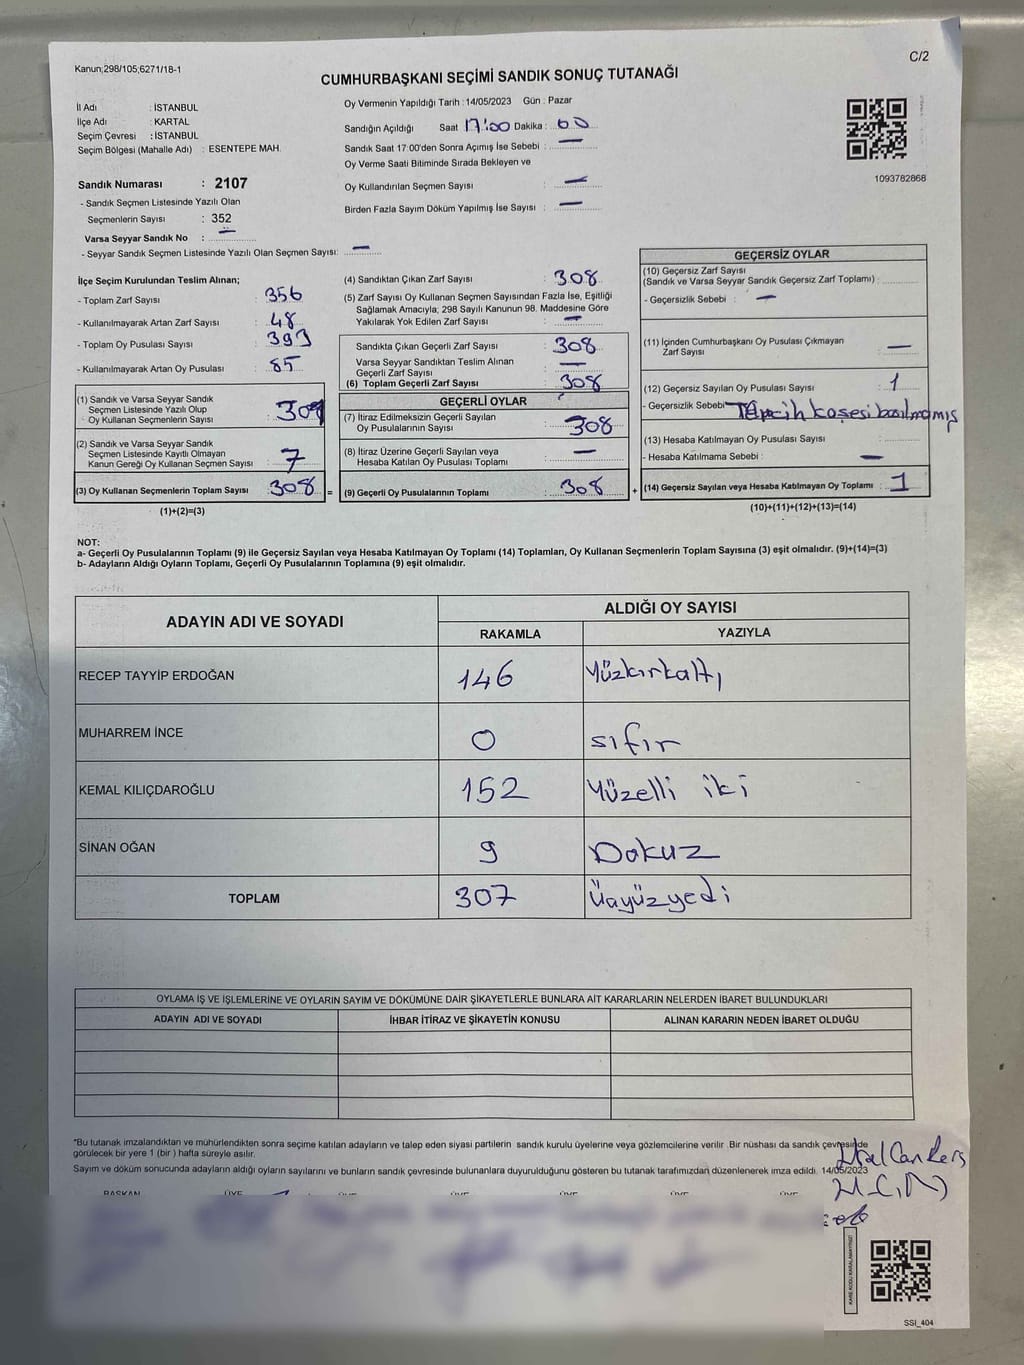 Kanun;298/105;6271/18-1
C/2
CUMHURBAŞKANI SEÇİMİ SANDIK SONUÇ TUTANAĞI
İl Adı : İSTANBUL
İlçe Adı : KARTAL
Seçim Çevresi : İSTANBUL
Seçim Bölgesi (Mahalle Adı) : ESENTEPE MAH.
Sandık Numarası : 2107
- Sandık Seçmen Listesinde Yazılı Olan
Seçmenlerin Sayısı : 352
Varsa Seyyar Sandık No : —
- Seyyar Sandık Seçmen Listesinde Yazılı Olan Seçmen Sayısı: —
Oy Vermenin Yapıldığı Tarih : 14/05/2023 Gün : Pazar
Sandığın Açıldığı Saat 17:00 Dakika : 00
Sandık Saat 17:00'den Sonra Açımış İse Sebebi : —
Oy Verme Saati Bitiminde Sırada Bekleyen ve
Oy Kullandırılan Seçmen Sayısı : —
Birden Fazla Sayım Döküm Yapılmış İse Sayısı : —
1093782868
İlçe Seçim Kurulundan Teslim Alınan;
- Toplam Zarf Sayısı : 356
- Kullanılmayarak Artan Zarf Sayısı : 48
- Toplam Oy Pusulası Sayısı : 393
- Kullanılmayarak Artan Oy Pusulası : 85
(1) Sandık ve Varsa Seyyar Sandık
Seçmen Listesinde Yazılı Olup
Oy Kullanan Seçmenlerin Sayısı
(2) Sandık ve Varsa Seyyar Sandık
Seçmen Listesinde Kayıtlı Olmayan
Kanun Gereği Oy Kullanan Seçmen Sayısı : 7
(3) Oy Kullanan Seçmenlerin Toplam Sayısı : 308 =
(1)+(2)=(3)
(4) Sandıktan Çıkan Zarf Sayısı : 308
(5) Zarf Sayısı Oy Kullanan Seçmen Sayısından Fazla İse, Eşitliği
Sağlamak Amacıyla; 298 Sayılı Kanunun 98. Maddesine Göre
Yakılarak Yok Edilen Zarf Sayısı : —
Sandıkta Çıkan Geçerli Zarf Sayısı : 308
Varsa Seyyar Sandıktan Teslim Alınan
Geçerli Zarf Sayısı : —
(6) Toplam Geçerli Zarf Sayısı : 308
GEÇERLİ OYLAR
(7) İtiraz Edilmeksizin Geçerli Sayılan
Oy Pusulalarının Sayısı : 308
(8) İtiraz Üzerine Geçerli Sayılan veya
Hesaba Katılan Oy Pusulası Toplamı : —
(9) Geçerli Oy Pusulalarının Toplamı : 308 +
GEÇERSİZ OYLAR
(10) Geçersiz Zarf Sayısı
(Sandık ve Varsa Seyyar Sandık Geçersiz Zarf Toplamı) :
- Geçersizlik Sebebi : —
(11) İçinden Cumhurbaşkanı Oy Pusulası Çıkmayan
Zarf Sayısı : —
(12) Geçersiz Sayılan Oy Pusulası Sayısı : 1
- Geçersizlik Sebebi Tercih kaşesi basılmamış
(13) Hesaba Katılmayan Oy Pusulası Sayısı :
- Hesaba Katılmama Sebebi : —
(14) Geçersiz Sayılan veya Hesaba Katılmayan Oy Toplamı : 1
(10)+(11)+(12)+(13)=(14)
NOT:
a- Geçerli Oy Pusulalarının Toplamı (9) ile Geçersiz Sayılan veya Hesaba Katılmayan Oy Toplamı (14) Toplamları, Oy Kullanan Seçmenlerin Toplam Sayısına (3) eşit olmalıdır. (9)+(14)=(3)
b- Adayların Aldığı Oyların Toplamı, Geçerli Oy Pusulalarının Toplamına (9) eşit olmalıdır.
ADAYIN ADI VE SOYADI ALDIĞI OY SAYISI
RAKAMLA YAZIYLA
RECEP TAYYİP ERDOĞAN 146 Yüzkırkaltı
MUHARREM İNCE 0 sıfır
KEMAL KILIÇDAROĞLU 152 Yüzelli iki
SİNAN OĞAN 9 Dokuz
TOPLAM 307 Üçyüzyedi
OYLAMA İŞ VE İŞLEMLERİNE VE OYLARIN SAYIM VE DÖKÜMÜNE DAİR ŞİKAYETLERLE BUNLARA AİT KARARLARIN NELERDEN İBARET BULUNDUKLARI
ADAYIN ADI VE SOYADI İHBAR İTİRAZ VE ŞİKAYETİN KONUSU ALINAN KARARIN NEDEN İBARET OLDUĞU
*Bu tutanak imzalandıktan ve mühürlendikten sonra seçime katılan adayların ve talep eden siyasi partilerin sandık kurulu üyelerine veya gözlemcilerine verilir. Bir nüshası da sandık çevresinde
görülecek bir yere 1 (bir) hafta süreyle asılır.
Sayım ve döküm sonucunda adayların aldığı oyların sayılarını ve bunların sandık çevresinde bulunanlara duyurulduğunu gösteren bu tutanak tarafımızdan düzenlenerek imza edildi. 14/05/2023
BAŞKAN ÜYE ÜYE ÜYE ÜYE ÜYE ÜYE
SSI_404